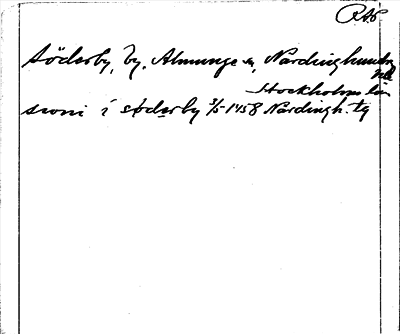 RAP
Söderby, by, Almunge sn, Närdinghundra
hd
Stockholms län
swni i søderby 3/5 1458 Närdingh. tg